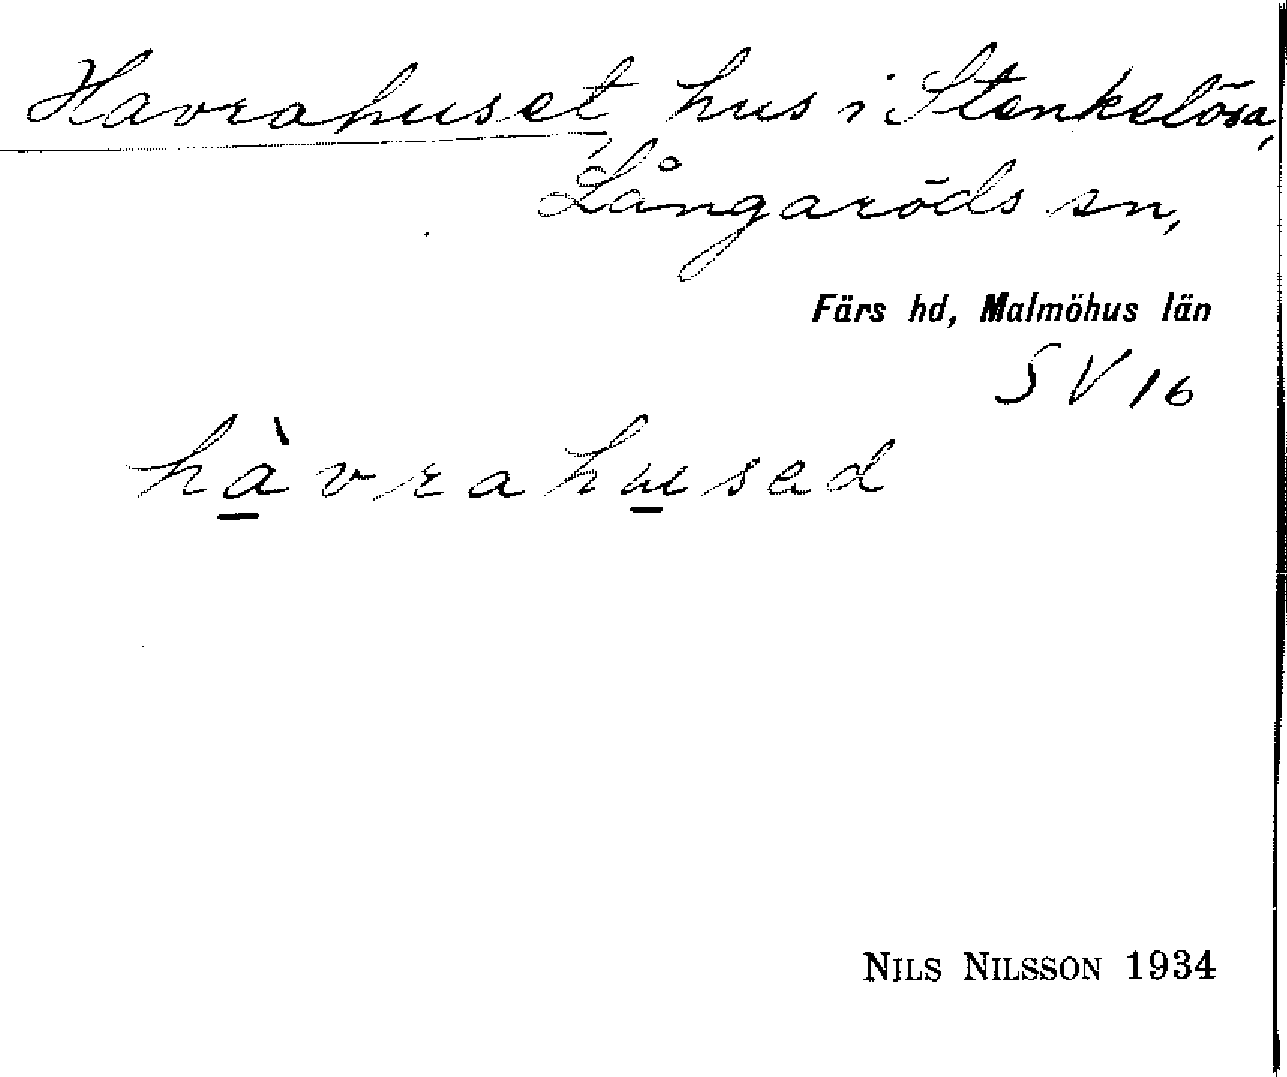 Havrahuset, hus i Stenkelösa,
Långaröds sn,
Färs hd, Malmöhus län
SV 16
hàvrahused
NILS NILSSON 1934